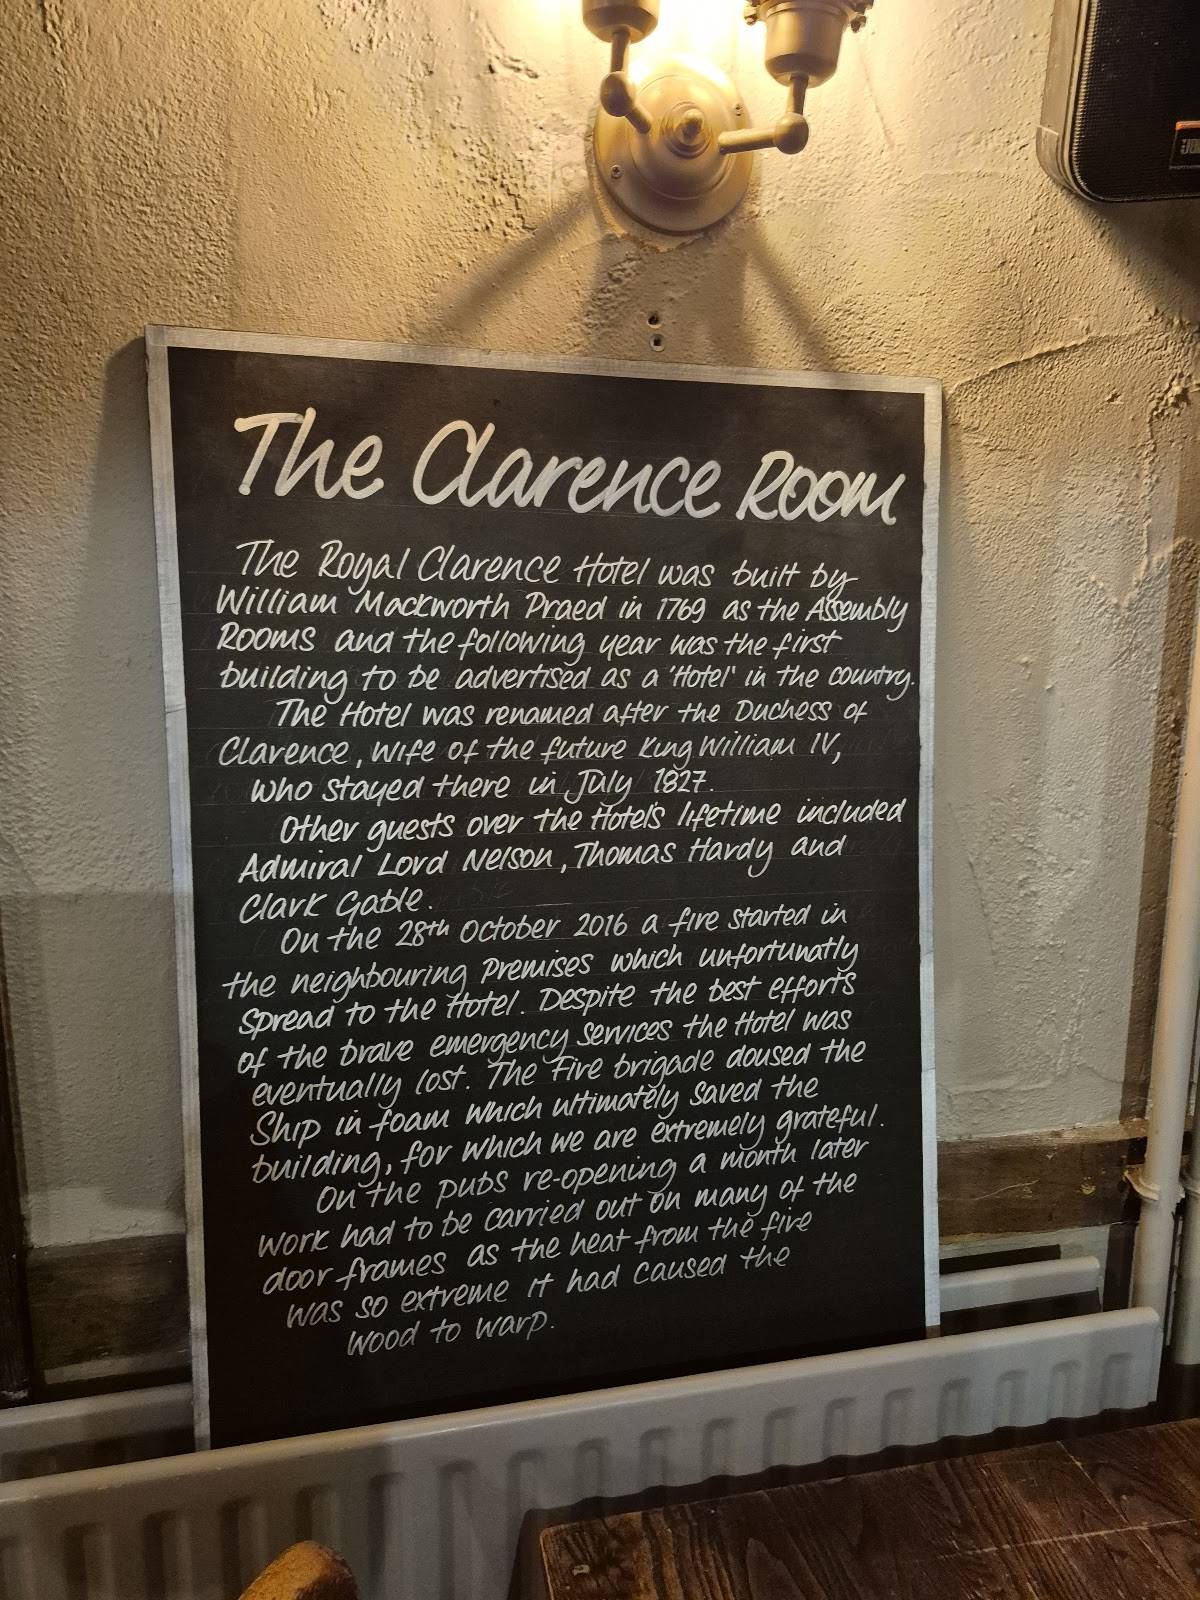 The Clarence Room
The Royal Clarence Hotel was built by
William Mackworth Praed in 1769 as the Assembly
Rooms and the following year was the first
building to be advertised as a 'Hotel' in the country.
The Hotel was renamed after the Duchess of
Clarence, wife of the future King William IV,
who stayed there in July 1827.
Other guests over the Hotels lifetime included
Admiral Lord Nelson, Thomas Hardy and
Clark Gable.
On the 28th October 2016 a fire started in
the neighbouring premises which unfortunatly
spread to the Hotel. Despite the best efforts
of the brave emergency services the Hotel was
eventually lost. The Fire brigade doused the
Ship in foam which ultimately saved the
building, for which we are extremely grateful.
On the pubs re-opening a month later
work had to be carried out on many of the
door frames as the heat from the fire
was so extreme it had caused the
wood to warp.
JBL